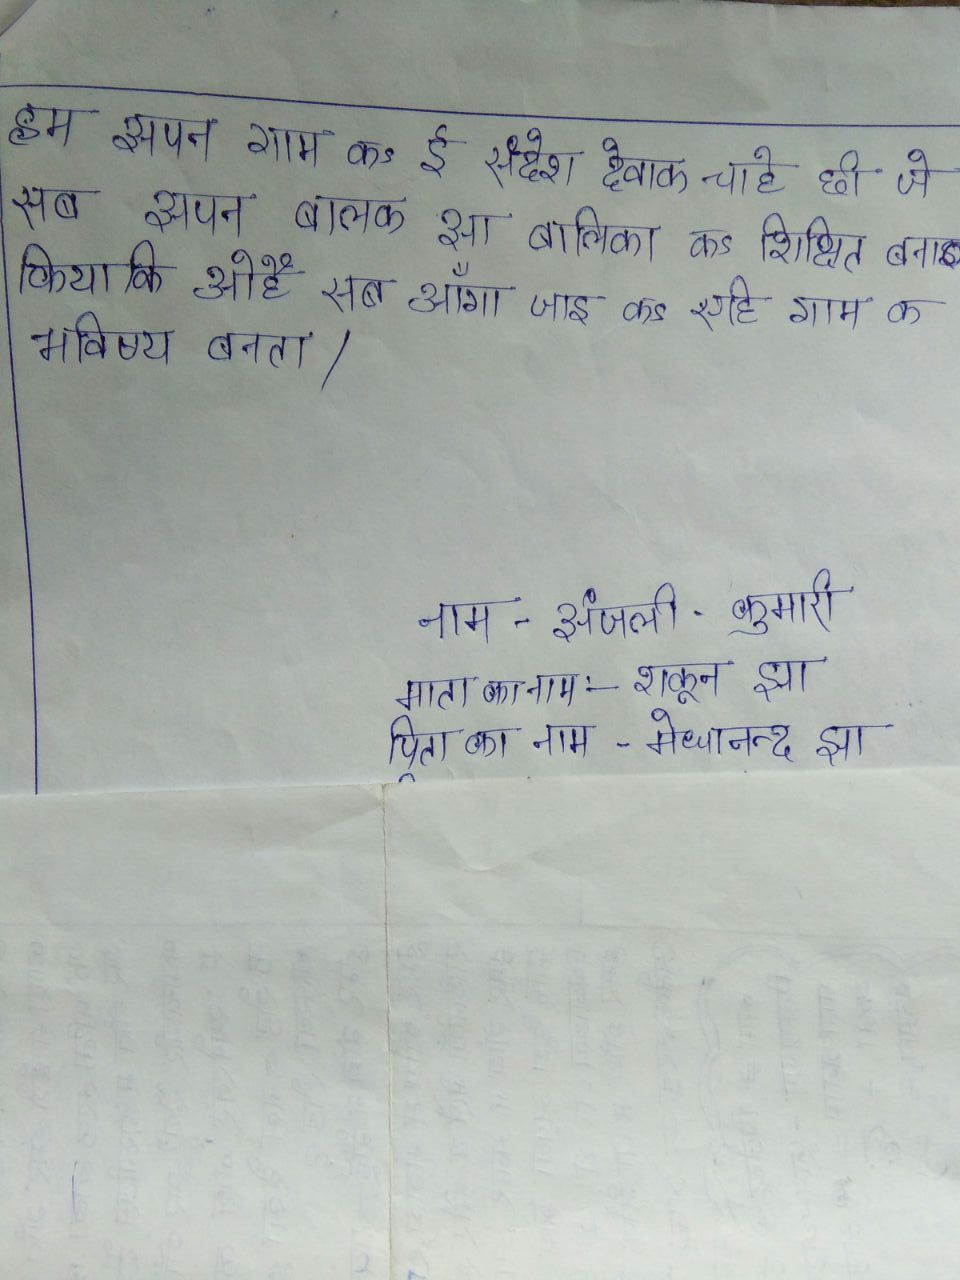 हम अपन गाम कऽ ई संदेश देवाक चाहे छी जे
सब अपन बालक आ बालिका कऽ शिक्षित बनाइ
कियाकि ओहे सब आँगा जाइ कऽ एहि गाम क
भविष्य बनता /
नाम - अंजली - कुमारी
माता का नाम :- शकून झा
पिता का नाम - मेधानन्द झा